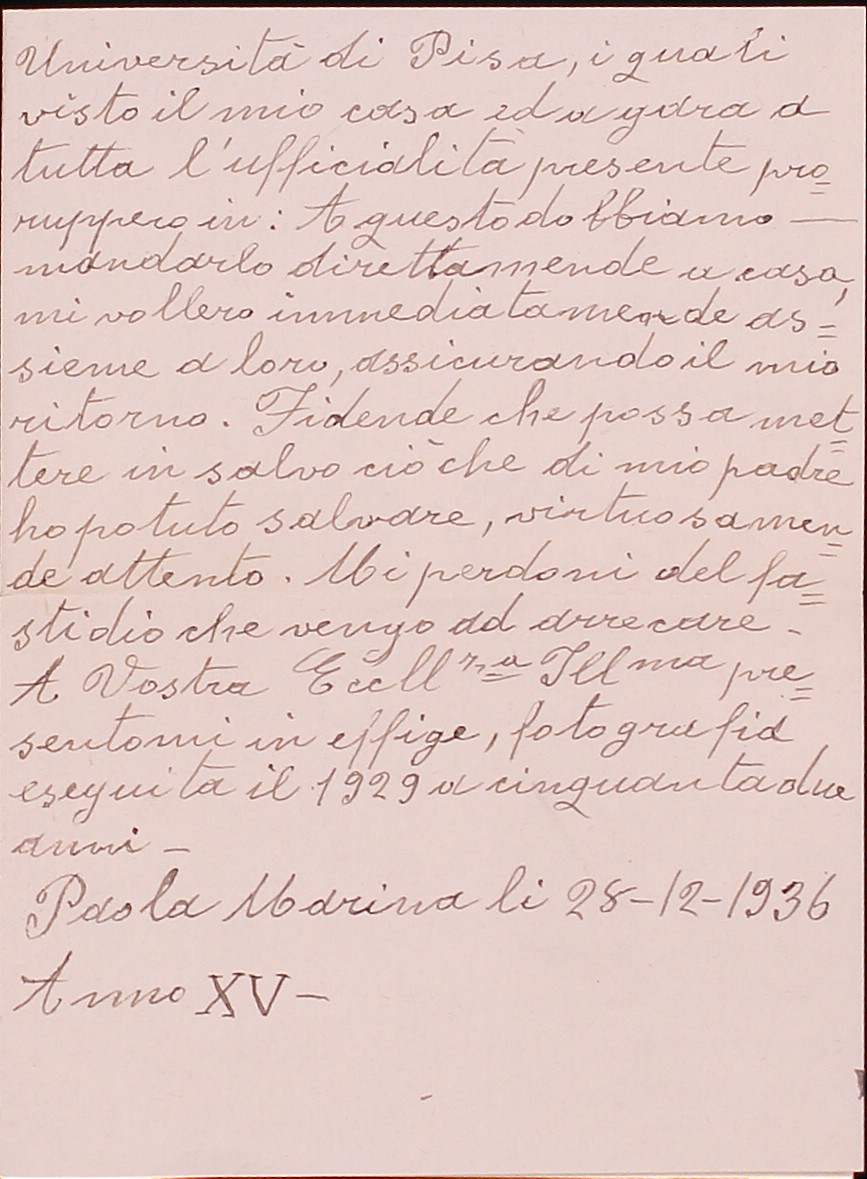 Università di Pisa, i quali
visto il mio casa ed a gara a
tutta l'ufficialità presente pro=
ruppero in: A questo dobbiamo —
mandarlo direttamende a casa,
mi vollero immediatamende as=
sieme a loro, assicurando il mio
ritorno. Fidende che possa met=
tere in salvo ciò che di mio padre
ho potuto salvare, virtuosamen=
de attento. Mi perdoni del fa=
stidio che vengo ad arrecare -
A Vostra Eccll nza Ill ma pre=
sentomi in effige, fotografia
eseguita il 1929 a cinquantadue
anni -
Paola Marina li 28-12-1936
Anno XV-